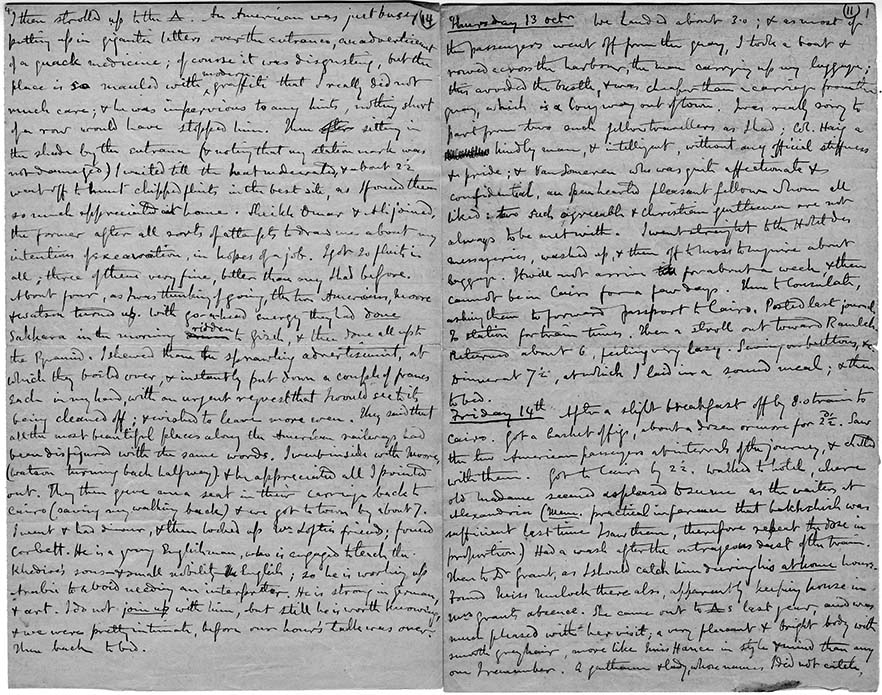 14
I then strolled up to the Δ. An American was just busy
putting up in gigantic letters over the entrance, an advertisement
of a quack medicine; of course it was disgusting, but the
place is so mauled with modern graffiti that I really did not
much care; & he was impervious to any hints, nothing short
of a row would have stopped him. Then after sitting in
the shade by the entrance (& noting that my station mark was
not damaged) I waited till the heat moderated, & about 2½
went off to hunt chipped flints in the best site, as I found them
so much appreciated at home. Sheikh Omar & Ali joined,
the former after all sorts of attempts to draw me about my
intentions of excavation, in hopes of a job. I got 20 flints in
all; three of them very fine, better than any I had before.
About four, as I was thinking of going, the two Americans, Moore
& Watson turned up. With go-ahead energy they had done
Sakkara in the morning ridden to Gizeh, & then done all up to
the Pyramid. I shewed them the sprawling advertisement, at
which they boiled over, & instantly put down a couple of francs
each in my hand, with an urgent request that I would see to its
being cleaned off; & wished to leave more even. They said that
all the most beautiful places along the American railways had
been disfigured with the same words. I went inside with Moore,
(Watson turning back halfway) & he appreciated all I pointed
out. They then gave me a seat in their carriage back to
Cairo (saving my walking back) & we got to town by about 7.
I went & had dinner, & then looked up Mr Loftie's friend; found
Corbett. He is a young Englishman, who is engaged to teach the
Khedive's sons & small nobility English; so he is working up
Arabic to avoid needing an interpreter. He is strong in German,
& art. I do not join up with him, but still he is worth knowing,
& we were pretty intimate, before our hour's talk was over.
Then back to bed.
11
Thursday 13 octr We landed about 3.0; & as most of
the passengers went off from the quay, I took a boat &
rowed across the harbour, the man carrying up my luggage;
this avoided the bustle, & was cheaper than a carriage from the
quay, which is a long way out of town. I was really sorry to
part from two such fellow travellers as I had; Col. Haig a
kindly man, & intelligent, without any official stiffness
& pride; & Van Someren who was quite affectionate &
confidential, an openhearted pleasant fellow whom all
liked: two such agreeable & christian gentlemen are not
always to be met with. I went straight to the Hotel des
messageries, washed up, & then off to Moss to inquire about
baggage. It will not arrive for about a week, & then
cannot be in Cairo for a few days. Then to Consulate,
asking them to forward passport to Cairo. Posted last journal.
To station for train times. Then a stroll out toward Ramleh.
Returned about 6, feeling very lazy.
Dinner at 7½, at which I laid in a sound meal; & then
to bed.
Friday 14th After a slight breakfast off by 8.0 train to
Cairo. Got a basket of figs, about a dozen or more for 2½. Saw
the two American passengers at intervals of the journey, & chatted
with them. Got to Cairo by 2½. Walked to hotel, where
old madame seemed as pleased to see me as the waiters at
Alexandria (Mem. practical inference that bakhshish was
sufficient last time I saw them, therefore repeat the dose in
proportion) Had a wash after the outrageous dust of the train.
Then to Dr Grant, as I should catch him during his at home hours.
Found Miss Mulock there also, apparently keeping house in
Mrs Grant's absence. She came out to Δs last year, and was
much pleased with her visit; a very pleasant & bright body with
smooth grey hair, more like Miss Hance in style & mind than any
one I remember. A gentleman & lady, whose names I did not catch,